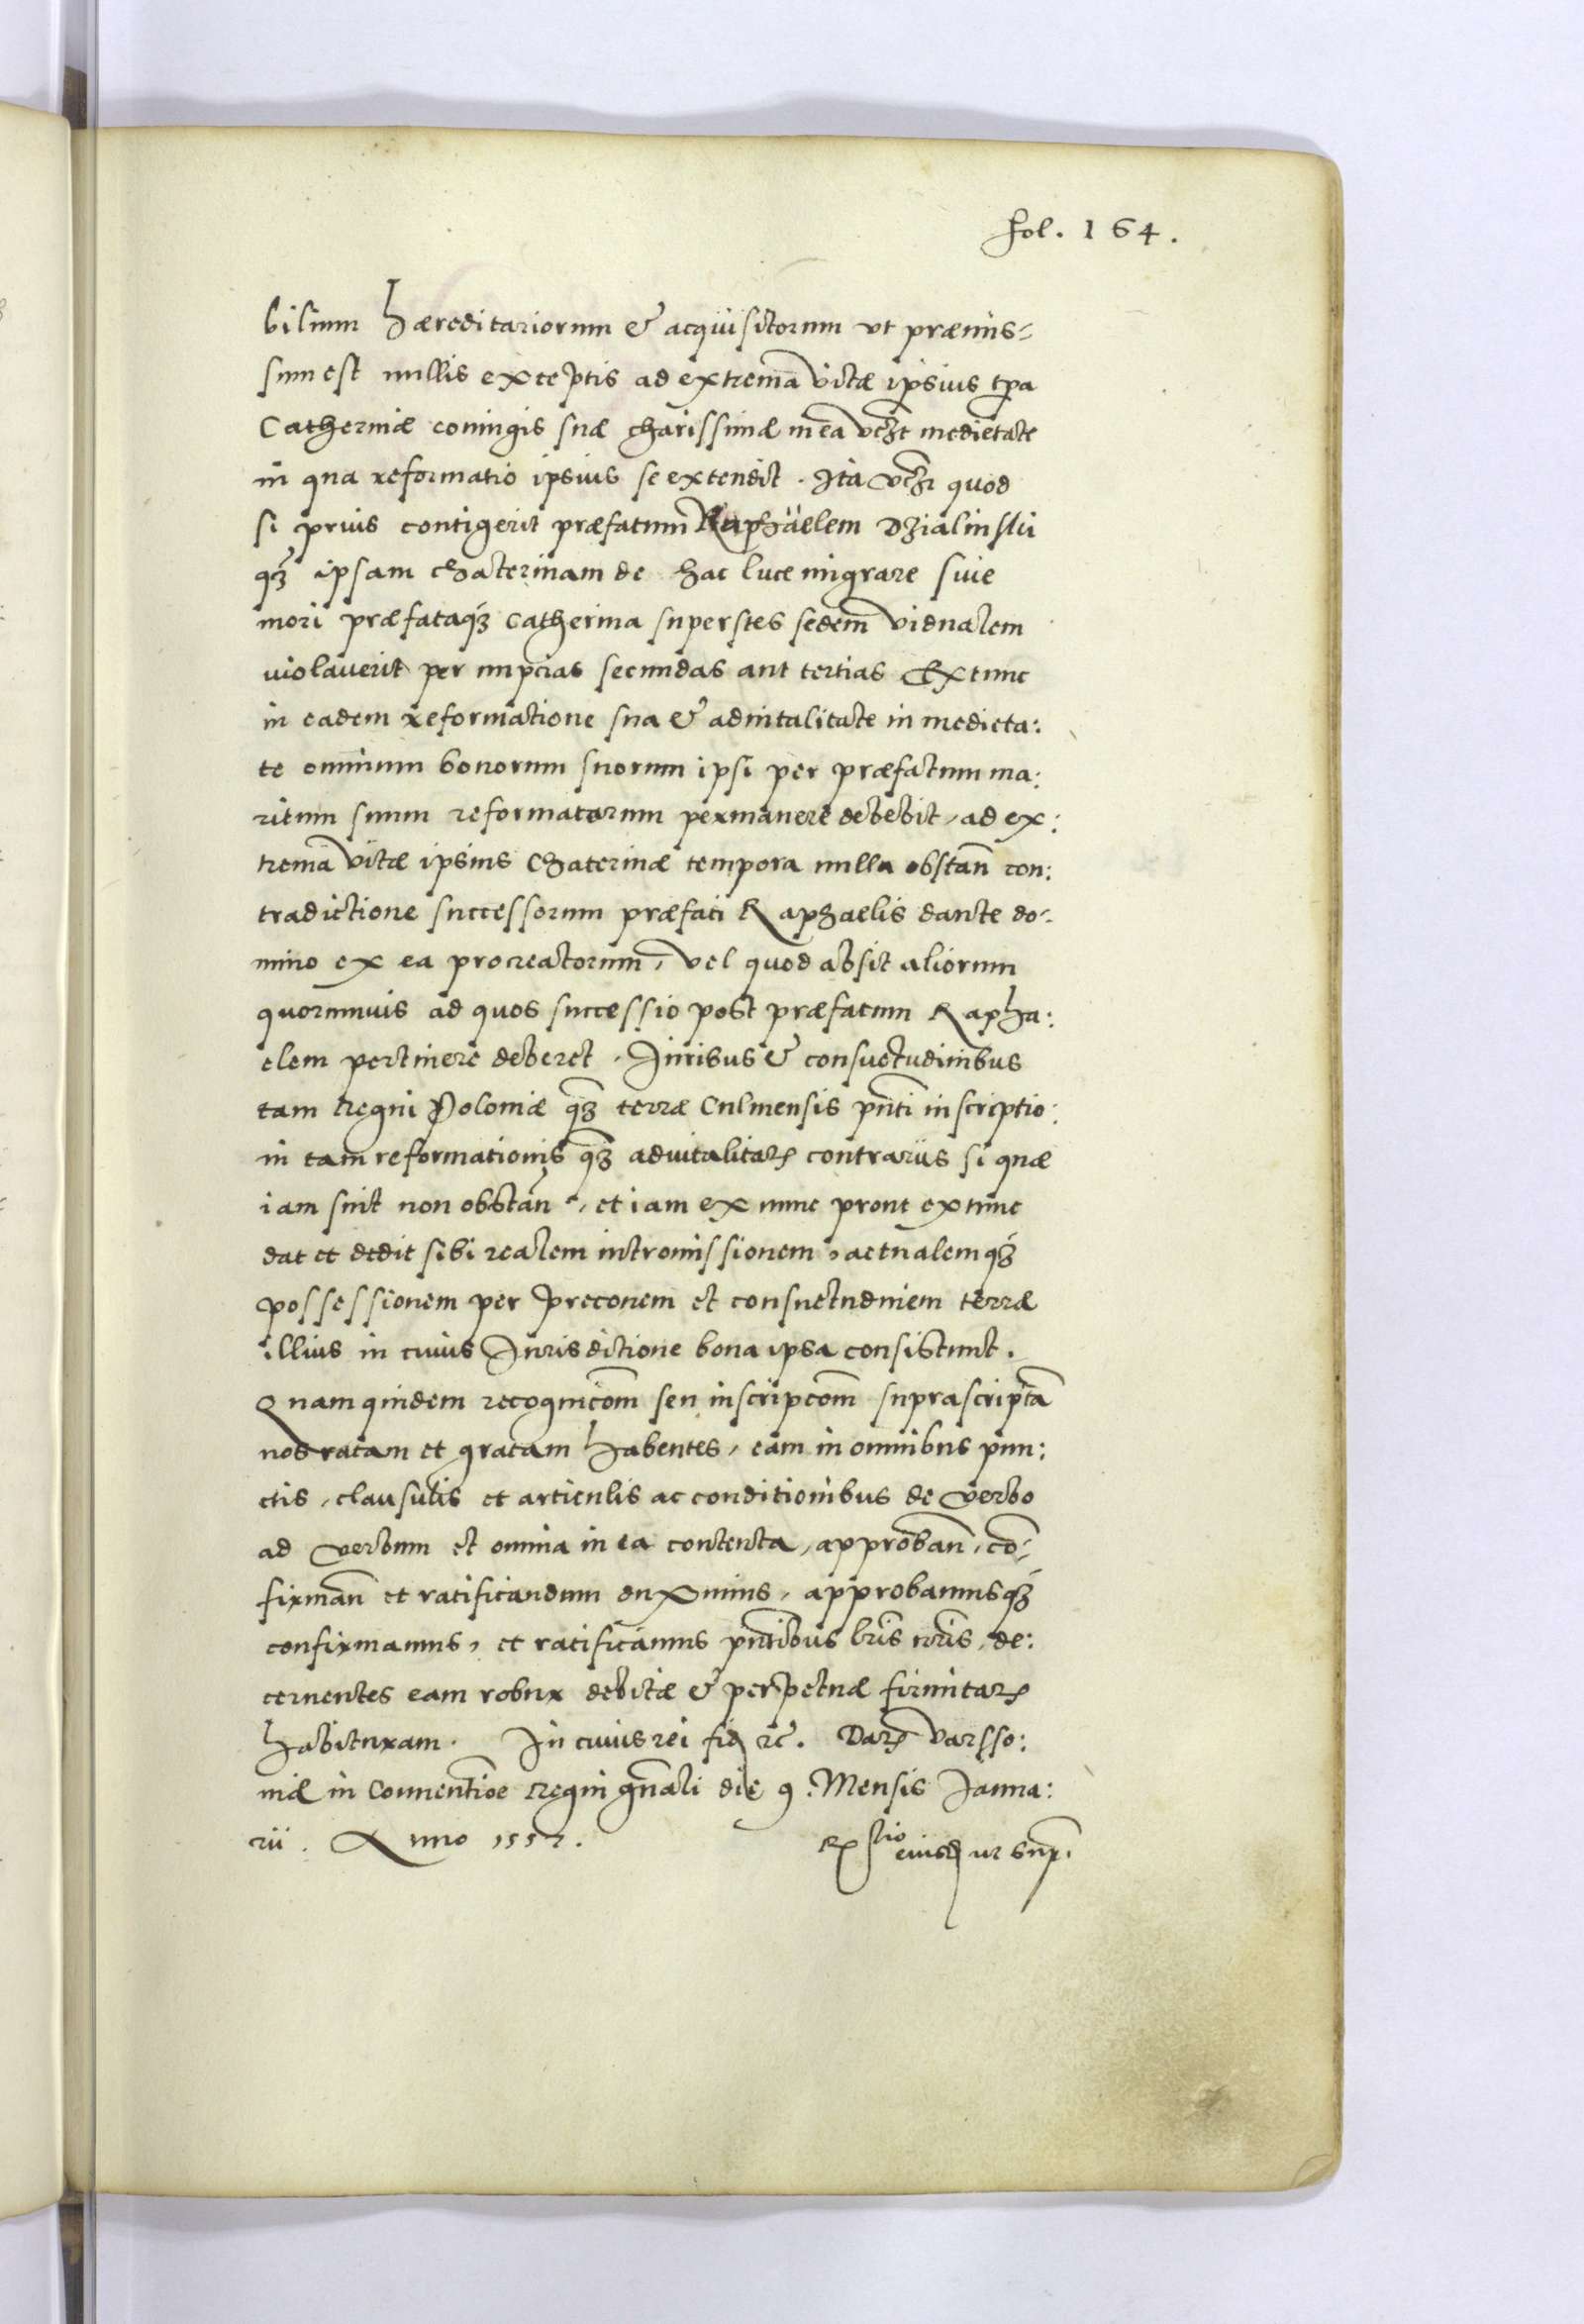 fol. 164.
bilium hæreditariorum & acquisitorum vt præmis-
sum est nullis exceptis ad extremã vitæ ipsius tp̃a
Catherinæ coniugis suæ charissimæ in ea vcz̃t medietate
in qua reformatio ipsius se extendit. Ita vcz̃t quod
si prius contigerit præfatum Raphäelem Dzialinski
qz̃ ipsam Chaterinam de hac luce migrare siue
mori præfataqź Catherina superstes sedem vidualem
uiolauerit per nupcias secundas aut tertias Extunc
in eadem reformatione sua & aduitalitate in medieta:
te omnium bonorum suorum ipsi per præfatum ma:
ritum suum reformatarum permanere debebit, ad ex:
tremã vitæ ipsius Chaterinæ tempora nulla obstañ con:
tradictione successorum præfati Raphaelis dante do-
mino ex ea procreatorum, vel quod absit aliorum
quorumuis ad quos successio post præfatum Rapha:
elem pertinere deberet. Iuribus & consuetudinibus
tam Regni Poloniæ qz̃ terræ Culmensis pñti inscriptio:
ni tam reformationis qz̃ aduitalitat̃ contrariis si quæ
iam sint non obstañ, et iam ex nunc prout extunc
dat et dedit sibi realem intromissionem, actualemqź
possessionem per preconem et consuetudinem terræ
illius in cuius Iurisditione bona ipsa consistunt.
Quamquidem recognicom̃ seu inscripcom̃ suprascriptã
nos ratam et gratam habentes, eam in omnibus pun:
ctis, clausulis et articulis ac conditionibus de verbo
ad verbum et omnia in ea contenta, approbañ, cõ-
firmañ et ratificandum duximus, approbamusqź
confirmamus, et ratificamus pñtibus lr̃is nr̃is, de:
cernentes eam robur debitæ & perpetuæ firmitat̃
habituram. In cuius rei fid̃ rc̃. Dat̃ Varsso:
uiæ in Conuentioẽ Regni gñali die 9. Mensis Ianua:
rii. Anno 1557.
Rs̃tio eiusd̃ ut sup̃.